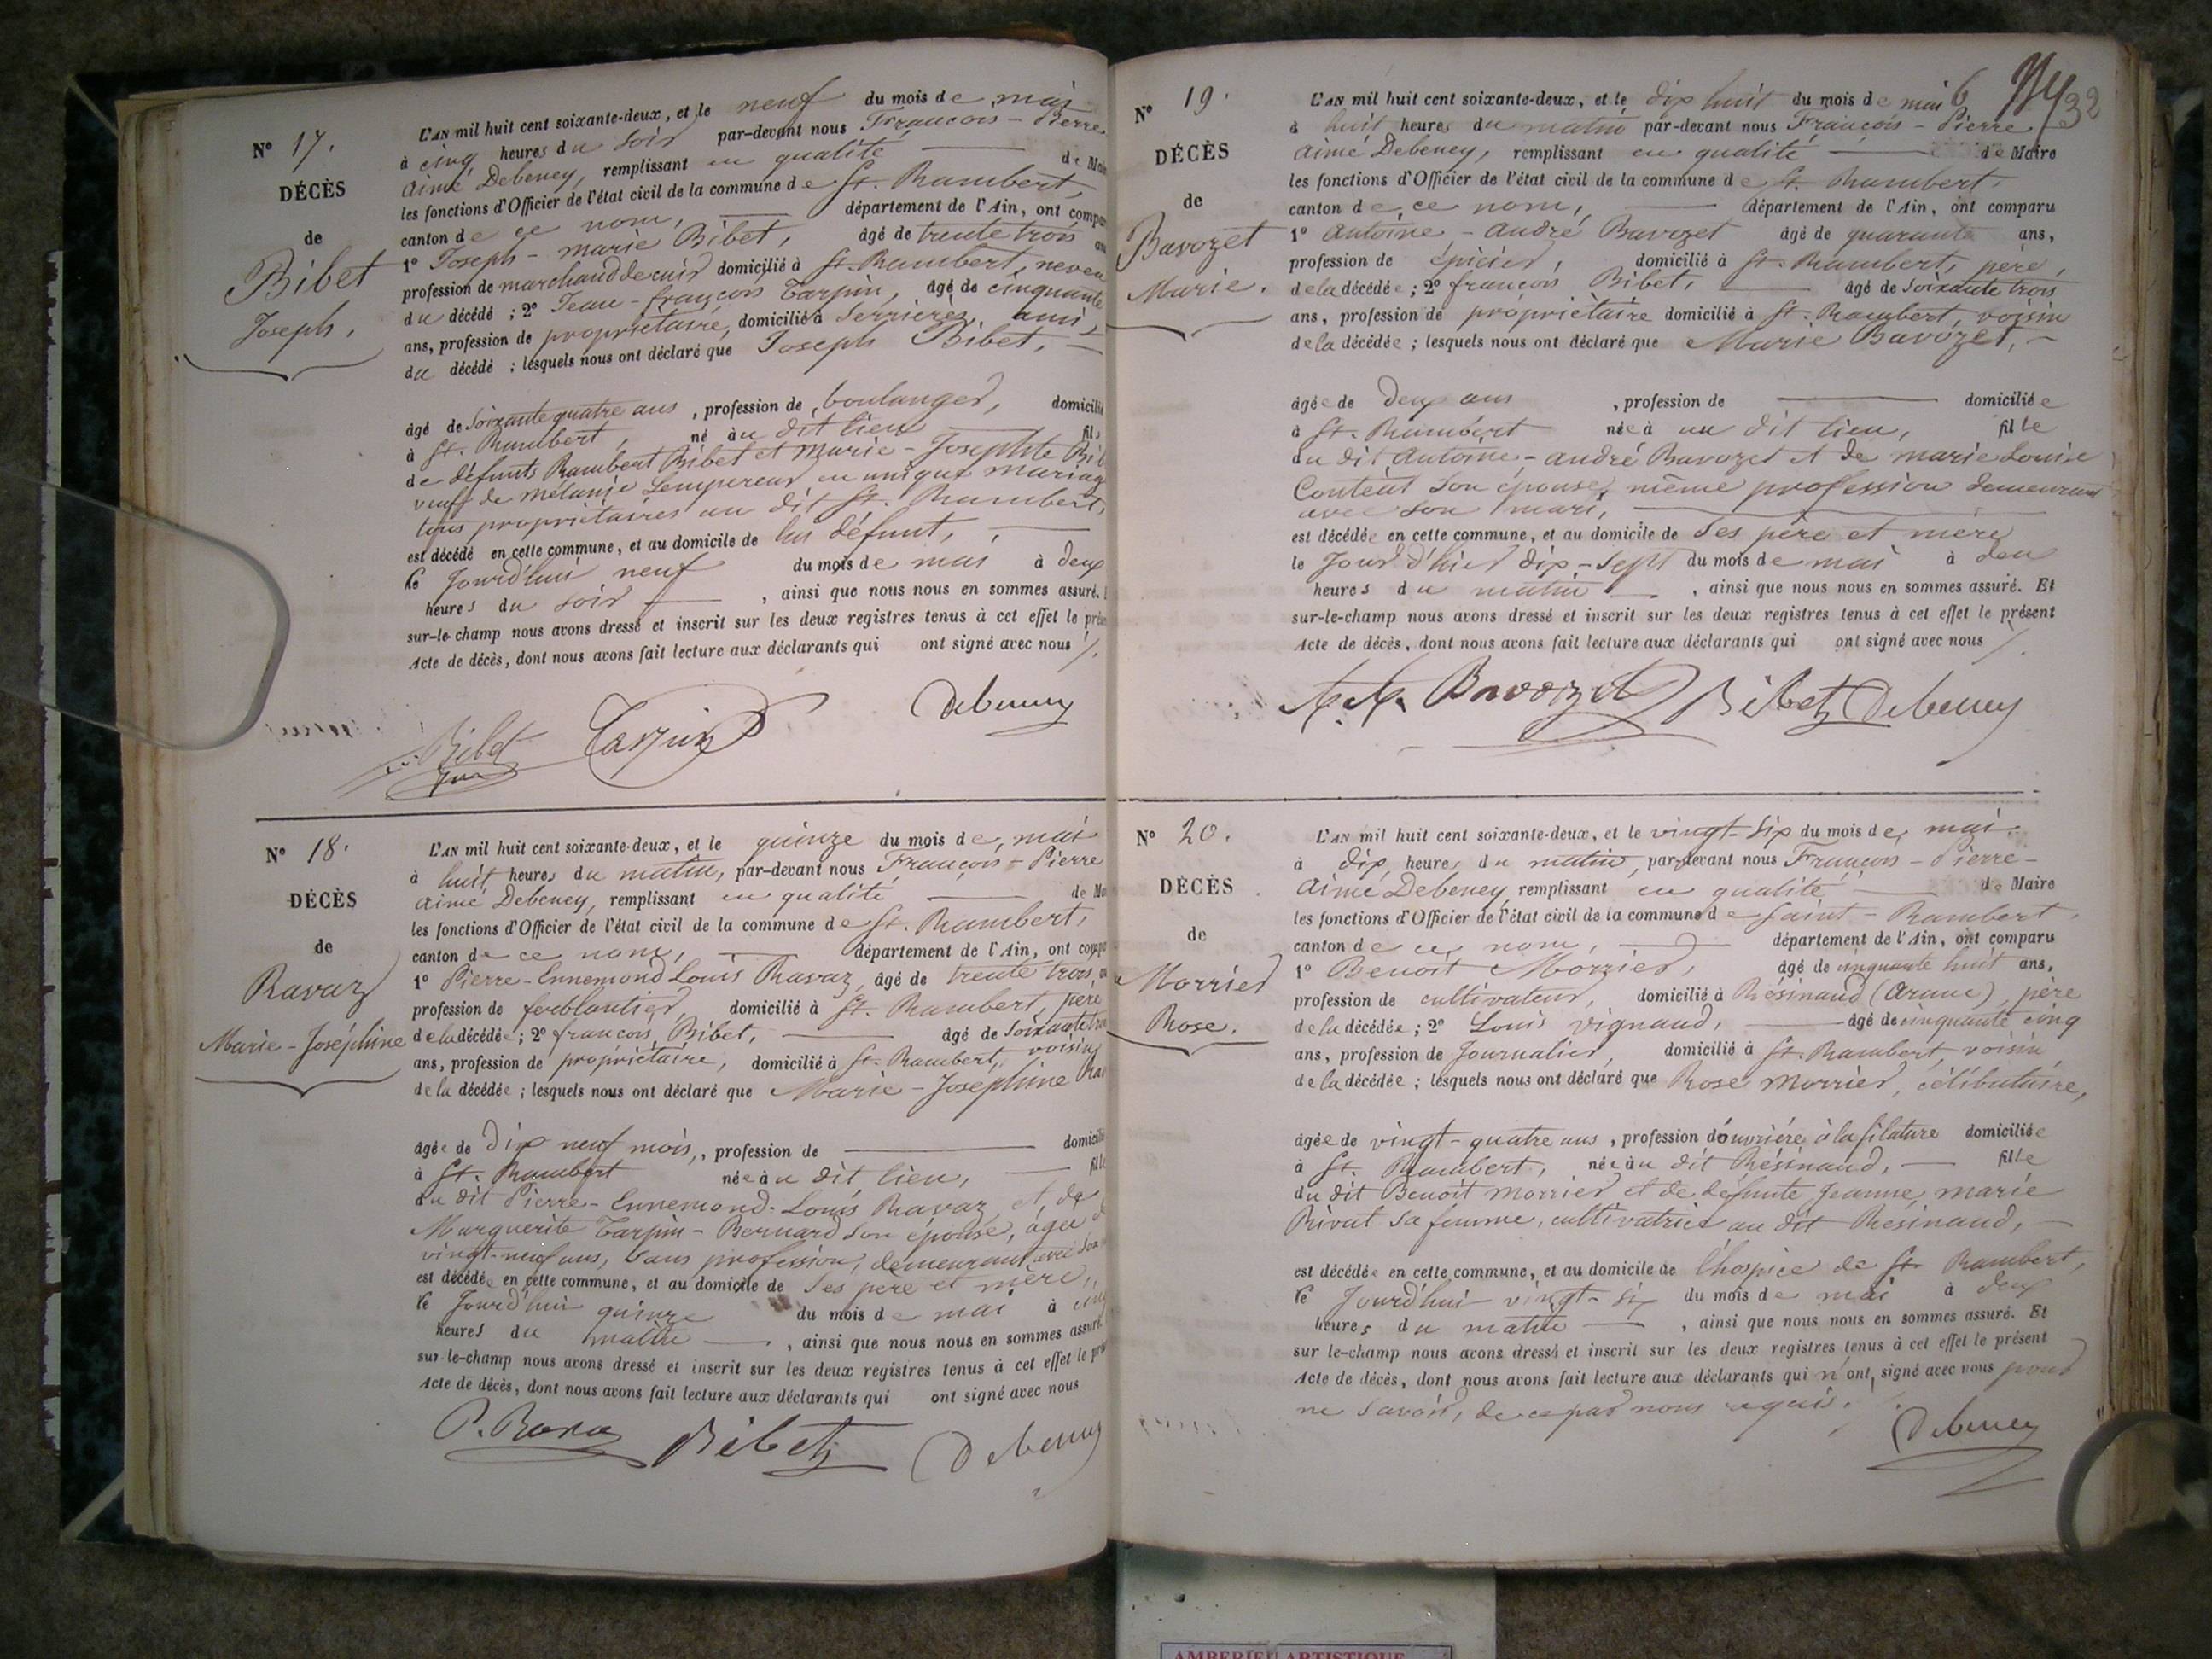 N° 17.
DÉCÈS
de
Bibet
Joseph.
L'AN mil huit cent soixante-deux, et le neuf du mois de mai
à cinq heures du soir par-devant nous François - Pierre
aimé Debeney, remplissant en qualité de Mai
les fonctions d'Officier de l'état civil de la commune de St. Rambert,
canton de ce nom, département de l'Ain, ont compa
1° Joseph - marie Bibet, âgé de trente trois ans
profession de marchand de cuir domicilié à St. Rambert, neveu
du décédé ; 2° Jean - françois Tarpin, âgé de cinquante
ans, profession de propriétaire, domicilié à Serrières, ami,
du décédé ; lesquels nous ont déclaré que Joseph Bibet,
âgé de soixante quatre ans, profession de boulanger, domicilié
à St. Rambert, né au dit lieu fils
de défunts Rambert Bibet et Marie - Josephte Bib
veuf de Mélanie Lempereur en unique mariag
tous propriétaires au dit St. Rambert,
est décédé en cette commune, et au domicile de lui défunt,
le Jourd'hui neuf du mois de mai à deux
heures du soir, ainsi que nous nous en sommes assuré.
sur-le-champ nous avons dressé et inscrit sur les deux registres tenus à cet effet le prése
Acte de décès, dont nous avons fait lecture aux déclarants qui ont signé avec nous /.
Bibet Tarpin Debeney
N° 18.
DÉCÈS
de
Ravaz
Marie - Joséphine
L'AN mil huit cent soixante-deux, et le quinze du mois de mai
à huit heures du matin, par-devant nous François - Pierre
aimé Debeney, remplissant en qualité de Ma
les fonctions d'Officier de l'état civil de la commune de St. Rambert,
canton de ce nom, département de l'Ain, ont compa
1° Pierre - Ennemond Louis Ravaz, âgé de trente trois an
profession de ferblantier, domicilié à St. Rambert, père
de la décédée ; 2° françois Bibet, âgé de soixante troi
ans, profession de propriétaire, domicilié à St. Rambert, voisin
de la décédée ; lesquels nous ont déclaré que Marie - Josephine Rav
âgée de dix neuf mois, profession de domicilié
à St. Rambert née au dit lieu, fille
du dit Pierre - Ennemond - Louis Ravaz et de
Marguerite Tarpin - Bernard son épouse, âgée d
vingt-neuf ans, sans profession, demeurant avec son
est décédée en cette commune, et au domicile de ses père et mère,
le Jourd'hui quinze du mois de mai à cinq
heures du matin, ainsi que nous nous en sommes assuré.
sur-le-champ nous avons dressé et inscrit sur les deux registres tenus à cet effet le prés
Acte de décès, dont nous avons fait lecture aux déclarants qui ont signé avec nous
P. Rava Bibet Debeney
N° 19.
DÉCÈS
de
Bavozet
Marie.
32
L'AN mil huit cent soixante-deux, et le dix huit du mois de mai
à huit heures du matin par-devant nous François - Pierre
aimé Debeney, remplissant en qualité de Maire
les fonctions d'Officier de l'état civil de la commune de St. Rambert,
canton de ce nom, département de l'Ain, ont comparu
1° antoine - andré Bavozet âgé de quarante ans,
profession de épicier, domicilié à St. Rambert, père,
de la décédée ; 2° françois Bibet, âgé de soixante trois
ans, profession de propriétaire domicilié à St. Rambert, voisin
de la décédée ; lesquels nous ont déclaré que Marie Bavozet,
âgée de deux ans, profession de domiciliée
à St. Rambert née à au dit lieu, fille
du dit antoine - andré Bavozet et de marie Louise
Conteat son épouse, même profession demeurant
avec son mari,
est décédée en cette commune, et au domicile de ses père et mère
le Jour d'hier dix - sept du mois de mai à deu
heures du matin, ainsi que nous nous en sommes assuré. Et
sur-le-champ nous avons dressé et inscrit sur les deux registres tenus à cet effet le présent
Acte de décès, dont nous avons fait lecture aux déclarants qui ont signé avec nous /.
A. A. Bavozet Bibet Debeney
N° 20.
DÉCÈS
de
Morrier
Rose.
L'AN mil huit cent soixante-deux, et le vingt-six du mois de mai
à dix heures du matin, par-devant nous François - Pierre -
aimé Debeney remplissant en qualité de Maire
les fonctions d'Officier de l'état civil de la commune de Saint - Rambert,
canton de ce nom, département de l'Ain, ont comparu
1° Benoit Morrier, âgé de cinquante huit ans,
profession de cultivateur, domicilié à Résinaud (Arane), père
de la décédée ; 2° Louis vignaud, âgé de cinquante cinq
ans, profession de Journalier, domicilié à St. Rambert, voisin
de la décédée ; lesquels nous ont déclaré que Rose Morrier, célibataire,
âgée de vingt-quatre ans, profession d'ouvrière à la filature domiciliée
à St. Rambert, née au dit Résinaud, fille
du dit Benoit Morrier et de défunte Jeanne marie
Privat sa femme, cultivatrice au dit Résinaud,
est décédée en cette commune, et au domicile de l'hospice de St. Rambert,
le Jourd'hui vingt-six du mois de mai à deux
heures du matin, ainsi que nous nous en sommes assuré. Et
sur le-champ nous avons dressé et inscrit sur les deux registres tenus à cet effet le présent
Acte de décès, dont nous avons fait lecture aux déclarants qui n'ont signé avec nous pour
ne savoir, de ce par nous requis.
Debeney
AMBERIEU ARTISTIQUE